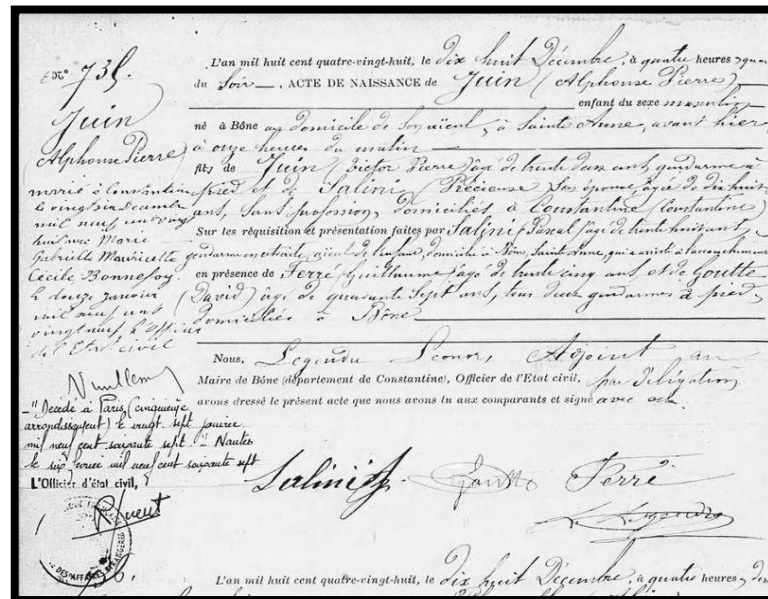 N° 735.
Juin
(Alphonse Pierre)
marié à Constantine
le vingt six décembre
mil neuf cent vingt
huit avec Marie
Gabrielle Mauricette
Cécile Bonnefoy.
le douze janvier
mil neuf cent
vingt neuf. L'Officier
de l'Etat civil
"Décédé à Paris (cinquième
arrondissement) le vingt sept janvier
mil neuf cent soixante sept" - Nantes
le six février mil neuf cent soixante sept
L'Officier d'état civil,
DES AFFAIRES ETRANGERES
L'an mil huit cent quatre-vingt-huit, le dix huit Décembre, à quatre heures
du Soir, ACTE DE NAISSANCE de Juin (Alphonse Pierre)
enfant du sexe masculin
né à Bône au domicile de son aïeul, à Sainte Anne, avant hier,
à onze heures du matin
fils de Juin (Victor Pierre) âgé de trente deux ans, gendarme à
pied et de Salini (Précieuse) son épouse, âgée de dix huit
ans, sans profession, domiciliés à Constantine (Constantine)
Sur les réquisition et présentation faites par Salini Pascal âgé de trente huit ans,
gendarme en retraite, aïeul de l'enfant, domicilié à Bône, Sainte Anne, qui a assisté à l'accouchement
en présence de Ferré (Guillaume) âgé de trente cinq ans et de Goutte
(David) âgé de quarante sept ans, tous deux gendarmes à pied,
domiciliés à Bône
Nous, Legendre Léonor, Adjoint au
Maire de Bône (département de Constantine), Officier de l'Etat civil, par délégation
avons dressé le présent acte que nous avons lu aux comparants et signé avec eux.
Salini Goutte Ferré
L. Legendre
L'an mil huit cent quatre-vingt-huit, le dix huit Décembre, à quatre heures